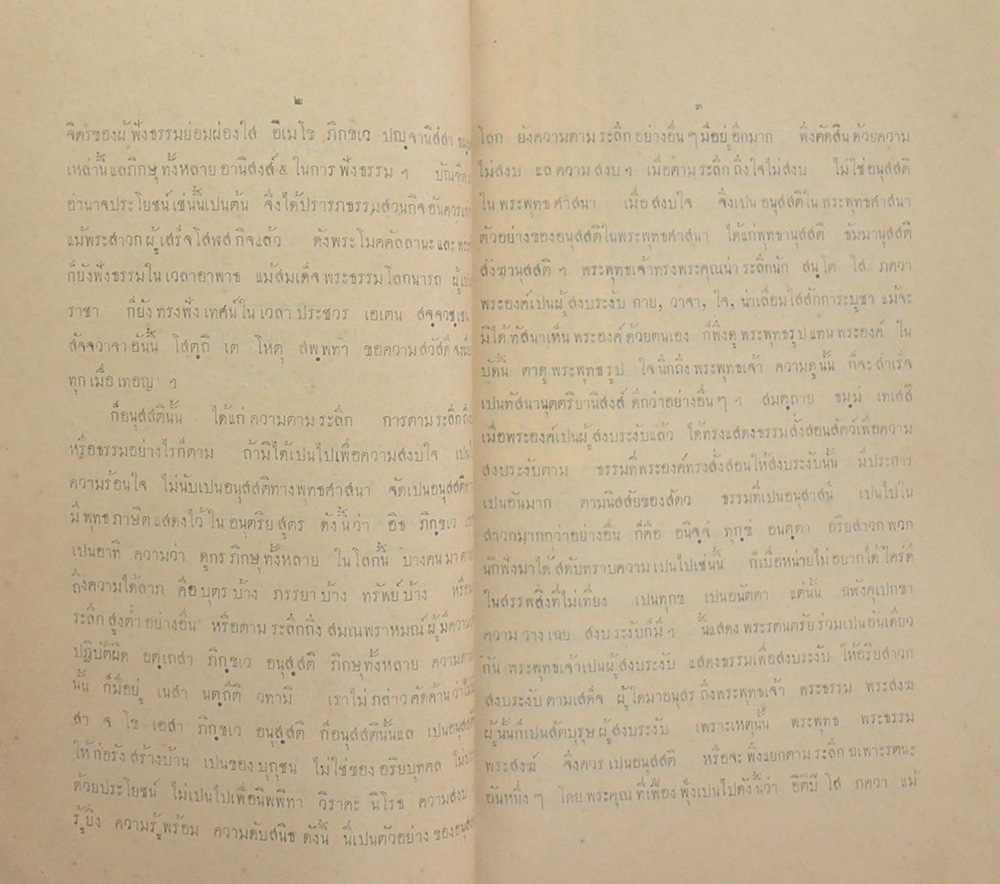 ๒
จิตรของผู้ฟังธรรมย่อมผ่องใส อิเมโข ภิกฺขเว ปญฺจานิสํสา
เหล่านี้แลภิกษุทั้งหลาย อานิสงส์ ๕ ในการฟังธรรม ฯ
อำนาจประโยชน์เช่นนี้เปนต้น จึงได้ปรารภธรรมสวนกิจ
แม้พระสาวกผู้เสร็จโสฬสกิจแล้ว ดังพระโมคคัลลานะและ
ก็ยังฟังธรรมในเวลาอาพาธ แม้สมเด็จพระธรรมโลกนารถ
ราชา ก็ยังทรงฟังเทศน์ในเวลาประชวร เอเตน
สัจจวาจาอันนี้ โสตฺถิ เต โหตุ สพฺพทา ขอความสวัสดี
ทุกเมื่อเทอญ ฯ
ก็อนุสสตินั้น ได้แก่ความตามระลึก การตามระลึก
หรือธรรมอย่างไรก็ตาม ถ้ามิได้เปนไปเพื่อความสงบใจ
ความร้อนใจ ไม่นับเปนอนุสสติทางพุทธศาสนา จัดเปนอนุสสติ
มีพุทธภาษิตแสดงไว้ในอนุตริยสูตร ดังนี้ว่า อิธ ภิกฺขเว
เปนอาทิ ความว่า ดูกรภิกษุทั้งหลาย ในโลกนี้ บางคนมา
ถึงความได้ลาภ คือบุตรบ้าง ภรรยาบ้าง ทรัพย์บ้าง
ระลึกสูงต่ำอย่างอื่น หรือตามระลึกถึง สมณพราหมณ์
ปฏิบัติผิด อตฺเถสา ภิกฺขเว อนุสฺสติ ภิกษุทั้งหลาย
นั้น ก็มีอยู่ เนสา นตฺถีติ วทามิ เราไม่กล่าวคัดค้าน
สา จ โข เอสา ภิกฺขเว อนุสฺสติ ก็อนุสสตินั้นแล
ให้ก่อรังสร้างบ้าน เปนของบุถุชน ไม่ใช่ของอริยบุคคล
ด้วยประโยชน์ ไม่เปนไปเพื่อนิพพิทา วิราคะ นิโรธ ความสงบ
รู้ยิ่ง ความรู้พร้อม ความดับสนิธ ดังนี้ นี่เปนตัวอย่าง
๓
โลก ยังความตามระลึกอย่างอื่น ๆ มีอยู่อีกมาก พึงตัดสินด้วยความ
ไม่สงบ แลความสงบ ฯ เมื่อตามระลึกถึงใจไม่สงบ ไม่ใช่อนุสสติ
ในพระพุทธศาสนา เมื่อสงบใจ จึงเปนอนุสติในพระพุทธศาสนา
ตัวอย่างของอนุสสติในพระพุทธศาสนา ได้แก่พุทธานุสสติ ธัมมานุสสติ
สังฆานุสสติ ฯ พระพุทธเจ้าทรงพระคุณน่าระลึกนัก สนฺโต โส ภควา
พระองค์เปนผู้สงบระงับ กาย, วาจา, ใจ, น่าเลื่อมใสสักการะบูชา แม้จะ
มิได้ทัสนาเห็นพระองค์ด้วยตนเอง ก็พึงดูพระพุทธรูปแทนพระองค์ ใน
บัดนี้ ตาดูพระพุทธรูป ใจนึกถึงพระพุทธเจ้า ความดูนั้น ก็จะสำเร็จ
เปนทัสนานุตตริยานิสงส์ ดีกว่าอย่างอื่น ๆ ฯ สมตฺถาย ธมฺมํ เทเสสิ
เมื่อพระองค์เปนผู้สงบระงับแล้ว ได้ทรงแสดงธรรมสั่งสอนสัตว์เพื่อความ
สงบระงับตาม ธรรมที่พระองค์ทรงสั่งสอนให้สงบระงับนั้น มีประการ
เปนอันมาก ตามนิสสัยของสัตว ธรรมที่เปนอนุสาสนี เปนไปใน
สาวกมากกว่าอย่างอื่น ก็คือ อนิจฺจํ ทุกฺขํ อนตฺตา อริยสาวกพวก
นักฟังมาได้สดับทราบความเปนไปเช่นนั้น ก็เบื่อหน่ายไม่อยากได้ใคร่ดี
ในสรรพสิ่งที่ไม่เที่ยง เปนทุกข เปนอนัตตา แต่นั้น ฉฬังคุเปกขา
ความวางเฉย สงบระงับก็มี ฯ นี้แสดงพระรตนตรัยร่วมเปนอันเดียว
กัน พระพุทธเจ้าเปนผู้สงบระงับ แสดงธรรมเพื่อสงบระงับ ให้อริยสาวก
สงบระงับตามเสด็จ ผู้ใดมาอนุสรถึงพระพุทธเจ้า พระธรรม พระสงฆ
ผู้นั้นก็เปนสัตบุรุษผู้สงบระงับ เพราะเหตุนั้น พระพุทธ พระธรรม
พระสงฆ์ จึงควรเปนอนุสสติ หรือจะพึงแยกตามระลึกฉเพาะรตนะ
อันหนึ่ง ๆ โดยพระคุณที่เฟื่องฟุ้งเปนไปดังนี้ว่า อิติปิ โส ภควา แม้